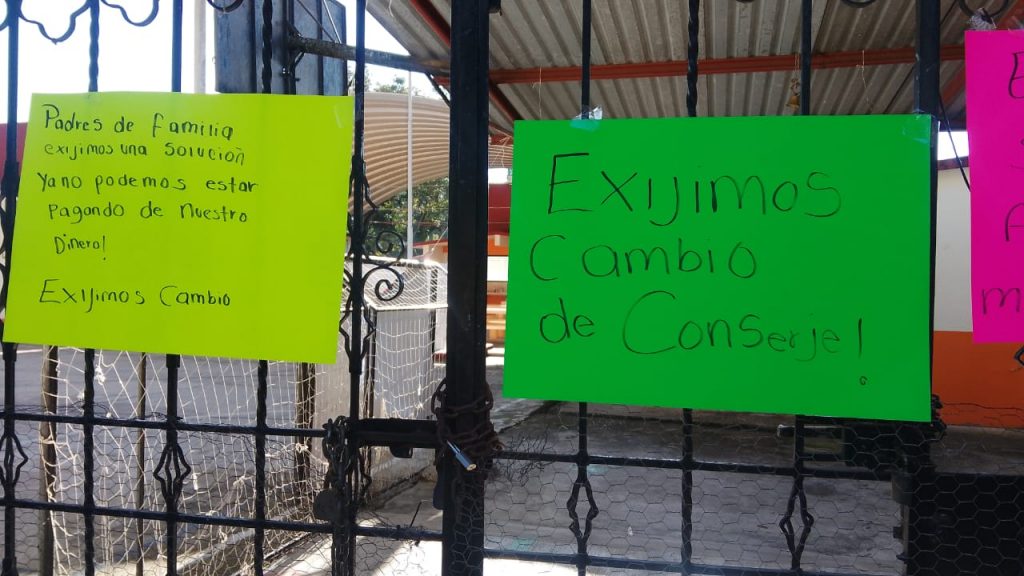 Padres de familia
exijimos una solución
Ya no podemos estar
pagando de Nuestro
Dinero!
Exijimos Cambio
Exijimos
Cambio
de Conserje!